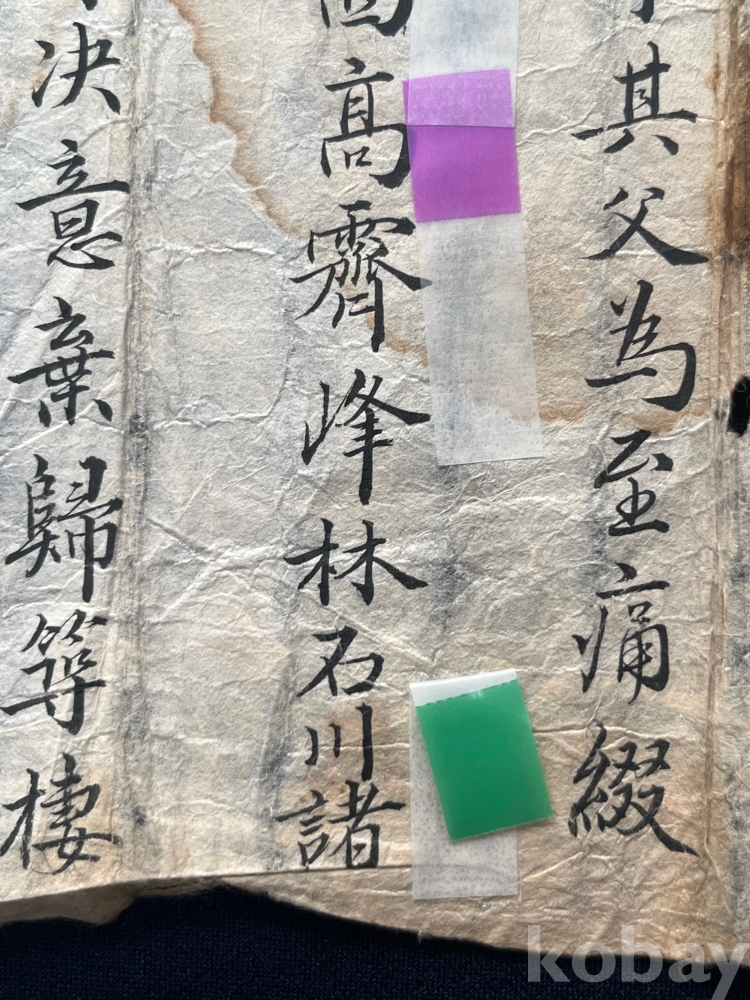 其父為至痛綴
高霽峰林石川諸
决意棄歸等棲
kobay